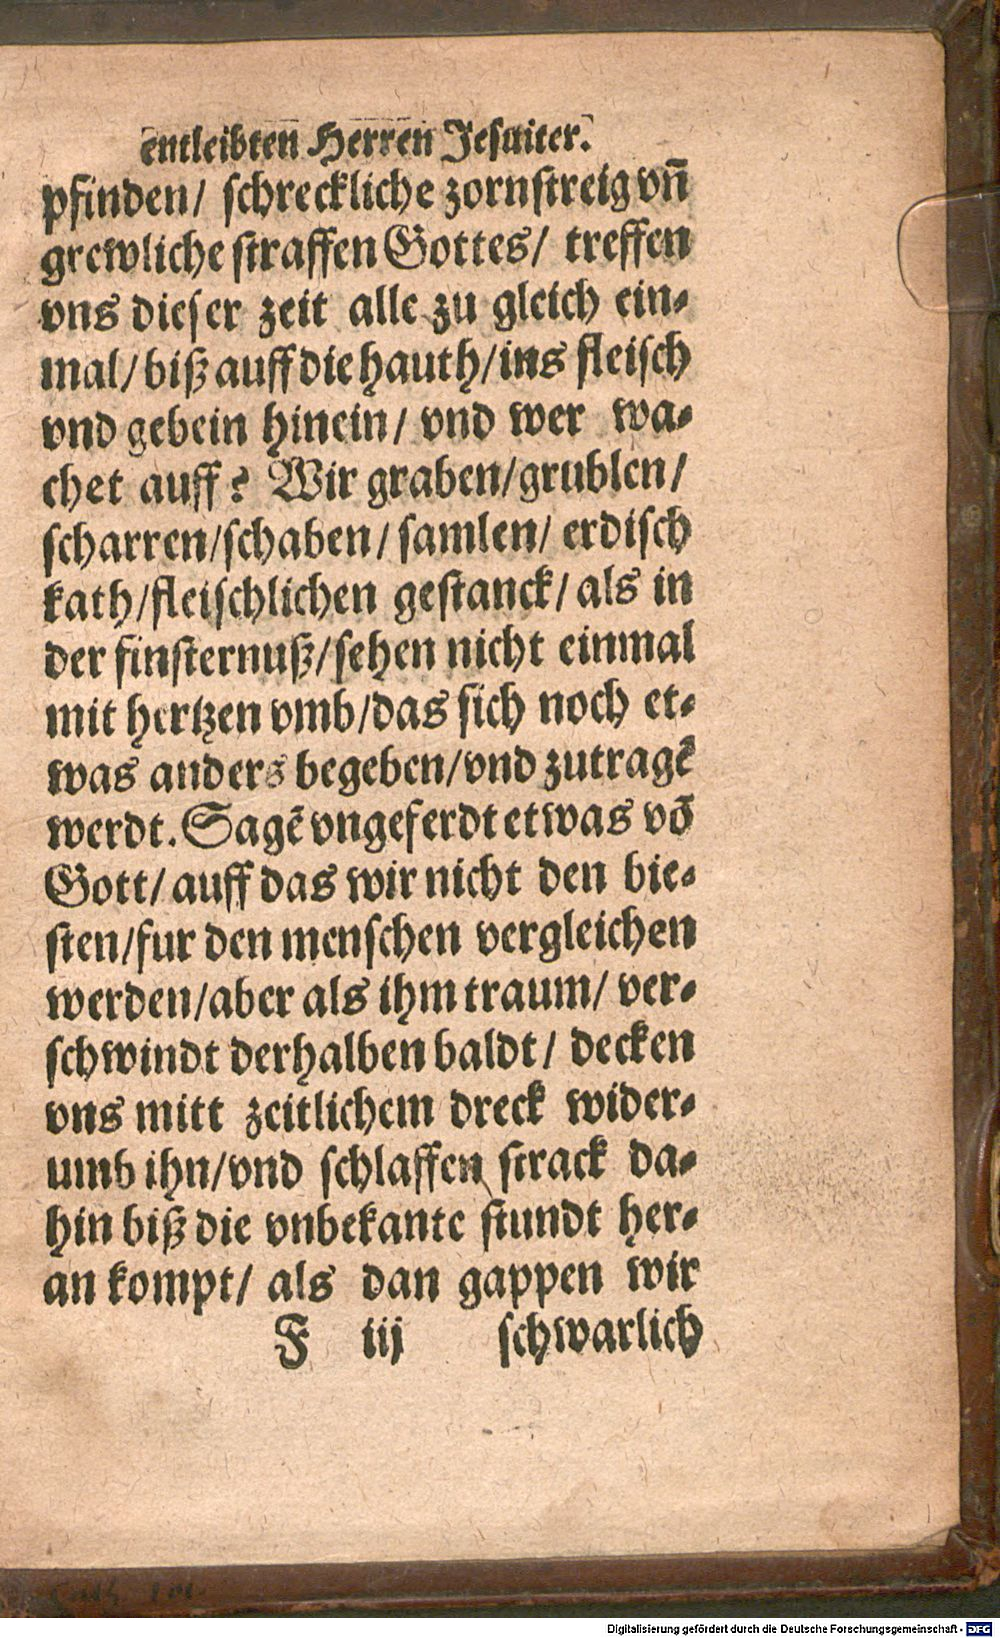 entleibten Herren Jesuiter.
pfinden/ schreckliche zornstreig vñ
grewliche straffen Gottes/ treffen
vns dieser zeit alle zu gleich ein-
mal/ biß auff die hauth/ ins fleisch
vnd gebein hinein/ vnd wer wa-
chet auff? Wir graben/ grublen/
scharren/ schaben/ samlen/ erdisch
kath/ fleischlichen gestanck/ als in
der finsternuß/ sehen nicht einmal
mit hertzen vmb/ das sich noch et-
was anders begeben/ vnd zutragē
werdt. Sagē vngeferdt etwas vō
Gott/ auff das wir nicht den bie-
sten/ fur den menschen vergleichen
werden/ aber als ihm traum/ ver-
schwindt derhalben baldt/ decken
vns mitt zeitlichem dreck wider-
umb ihn/ vnd schlaffen strack da-
hin biß die vnbekante stundt her-
an kompt/ als dan gappen wir
F iij schwarlich
Digitalisierung gefördert durch die Deutsche Forschungsgemeinschaft - DFG